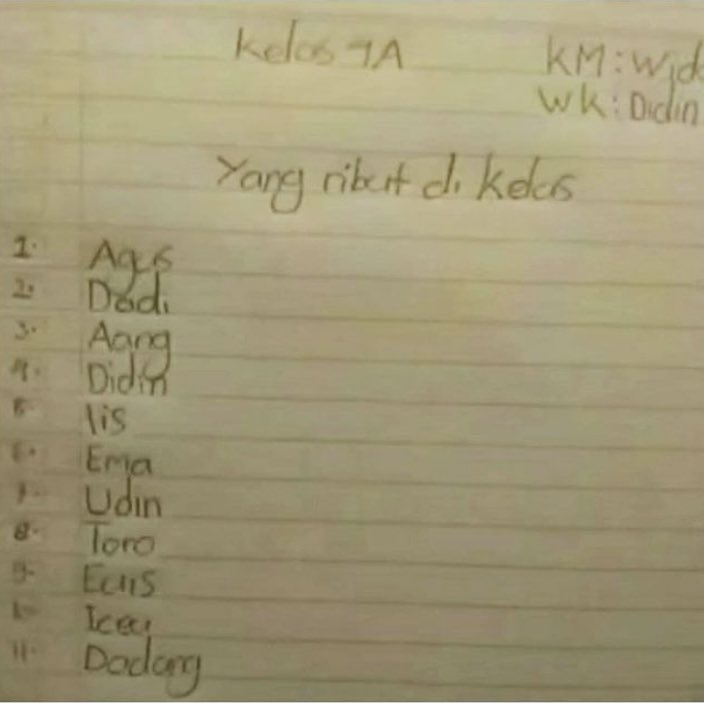 Kelas 7A
KM: Wid
WK: Didin
Yang ribut di kelas
1. Agus
2. Dadi
3. Aang
4. Didin
5. Iis
6. Ema
7. Udin
8. Toro
9. Ecus
Iceu
11. Dadang